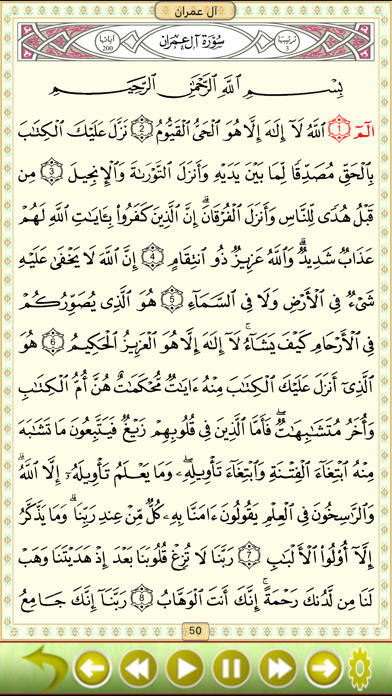 آل عمران
ترتيبها 3 سُورَةُ آلِ عِمْرَان آياتها 200
بِسْمِ ٱللَّهِ ٱلرَّحْمَٰنِ ٱلرَّحِيمِ
الٓمٓ ١ ٱللَّهُ لَآ إِلَٰهَ إِلَّا هُوَ ٱلْحَىُّ ٱلْقَيُّومُ ٢ نَزَّلَ عَلَيْكَ ٱلْكِتَٰبَ
بِٱلْحَقِّ مُصَدِّقًا لِّمَا بَيْنَ يَدَيْهِ وَأَنزَلَ ٱلتَّوْرَىٰةَ وَٱلْإِنجِيلَ ٣ مِن
قَبْلُ هُدًى لِّلنَّاسِ وَأَنزَلَ ٱلْفُرْقَانَ ۗ إِنَّ ٱلَّذِينَ كَفَرُوا۟ بِـَٔايَٰتِ ٱللَّهِ لَهُمْ
عَذَابٌ شَدِيدٌ ۗ وَٱللَّهُ عَزِيزٌ ذُو ٱنتِقَامٍ ٤ إِنَّ ٱللَّهَ لَا يَخْفَىٰ عَلَيْهِ
شَىْءٌ فِى ٱلْأَرْضِ وَلَا فِى ٱلسَّمَآءِ ٥ هُوَ ٱلَّذِى يُصَوِّرُكُمْ
فِى ٱلْأَرْحَامِ كَيْفَ يَشَآءُ ۚ لَآ إِلَٰهَ إِلَّا هُوَ ٱلْعَزِيزُ ٱلْحَكِيمُ ٦ هُوَ
ٱلَّذِىٓ أَنزَلَ عَلَيْكَ ٱلْكِتَٰبَ مِنْهُ ءَايَٰتٌ مُّحْكَمَٰتٌ هُنَّ أُمُّ ٱلْكِتَٰبِ
وَأُخَرُ مُتَشَٰبِهَٰتٌ ۖ فَأَمَّا ٱلَّذِينَ فِى قُلُوبِهِمْ زَيْغٌ فَيَتَّبِعُونَ مَا تَشَٰبَهَ
مِنْهُ ٱبْتِغَآءَ ٱلْفِتْنَةِ وَٱبْتِغَآءَ تَأْوِيلِهِۦ ۗ وَمَا يَعْلَمُ تَأْوِيلَهُۥٓ إِلَّا ٱللَّهُ ۗ
وَٱلرَّٰسِخُونَ فِى ٱلْعِلْمِ يَقُولُونَ ءَامَنَّا بِهِۦ كُلٌّ مِّنْ عِندِ رَبِّنَا ۗ وَمَا يَذَّكَّرُ
إِلَّآ أُو۟لُوا۟ ٱلْأَلْبَٰبِ ٧ رَبَّنَا لَا تُزِغْ قُلُوبَنَا بَعْدَ إِذْ هَدَيْتَنَا وَهَبْ
لَنَا مِن لَّدُنكَ رَحْمَةً ۚ إِنَّكَ أَنتَ ٱلْوَهَّابُ ٨ رَبَّنَآ إِنَّكَ جَامِعُ
50